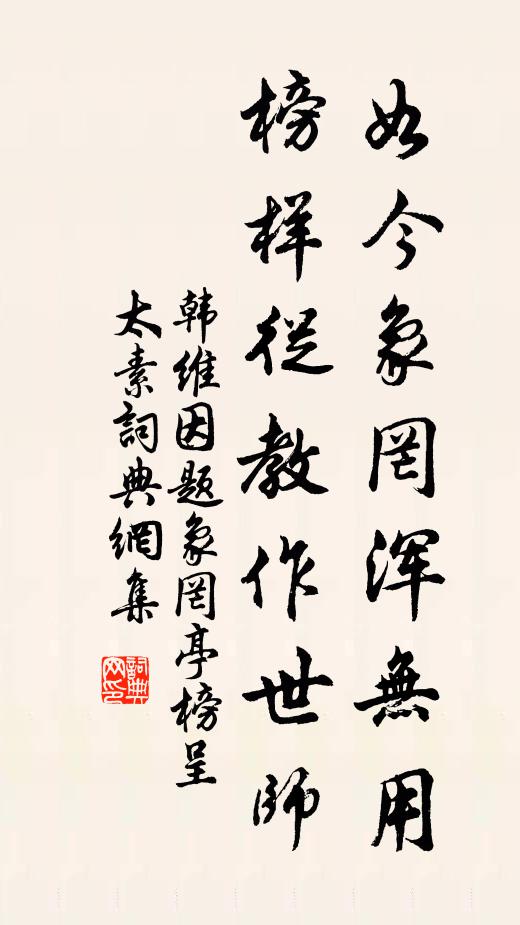 如今象罔浑無用
榜样從教作世師
韩维因题象罔亭榜呈
太素詞典網集
詞典网印